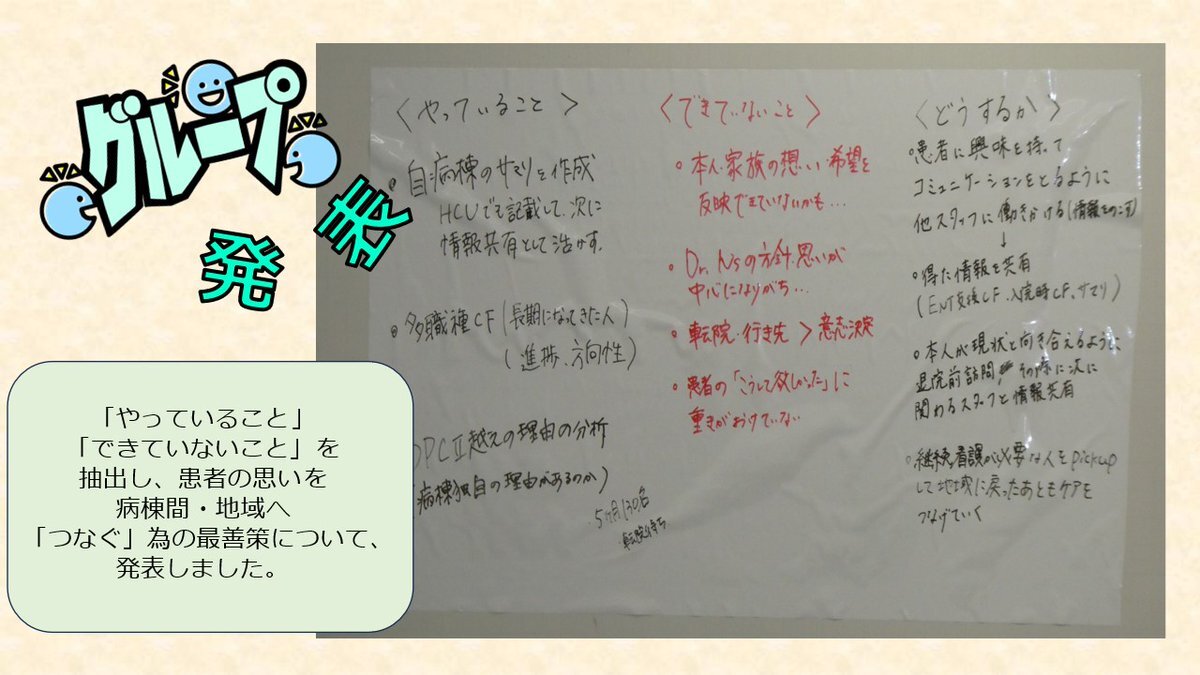 グループ
発表
「やっていること」
「できていないこと」を
抽出し、患者の思いを
病棟間・地域へ
「つなぐ」為の最善策について、
発表しました。
〈やっていること〉
自病棟のサマリを作成
HCUでも記載して、次に
情報共有として活かす。
多職種CF(長期になってきた人)
(進捗、方向性)
DPCⅡ越えの理由の分析
(病棟独自の理由があるのか)
転院待ち
〈できていないこと〉
本人・家族の想い・希望を
反映できていないかも…
Dr.Nsの方針、思いが
中心になりがち…
転院・行き先 > 意志決定
患者の「こうして欲しかった」に
重きがおけていない
〈どうするか〉
患者に興味を持って
コミュニケーションをとるように
他スタッフに働きかける(情報をのこす)
↓
得た情報を共有
(ENT支援CF、入院時CF、サマリ)
本人が現状と向き合えるように、
退院前訪問、その際に次に
関わるスタッフと情報共有
継続看護が必要な人をpickup
して地域に戻ったあともケアを
つなげていく